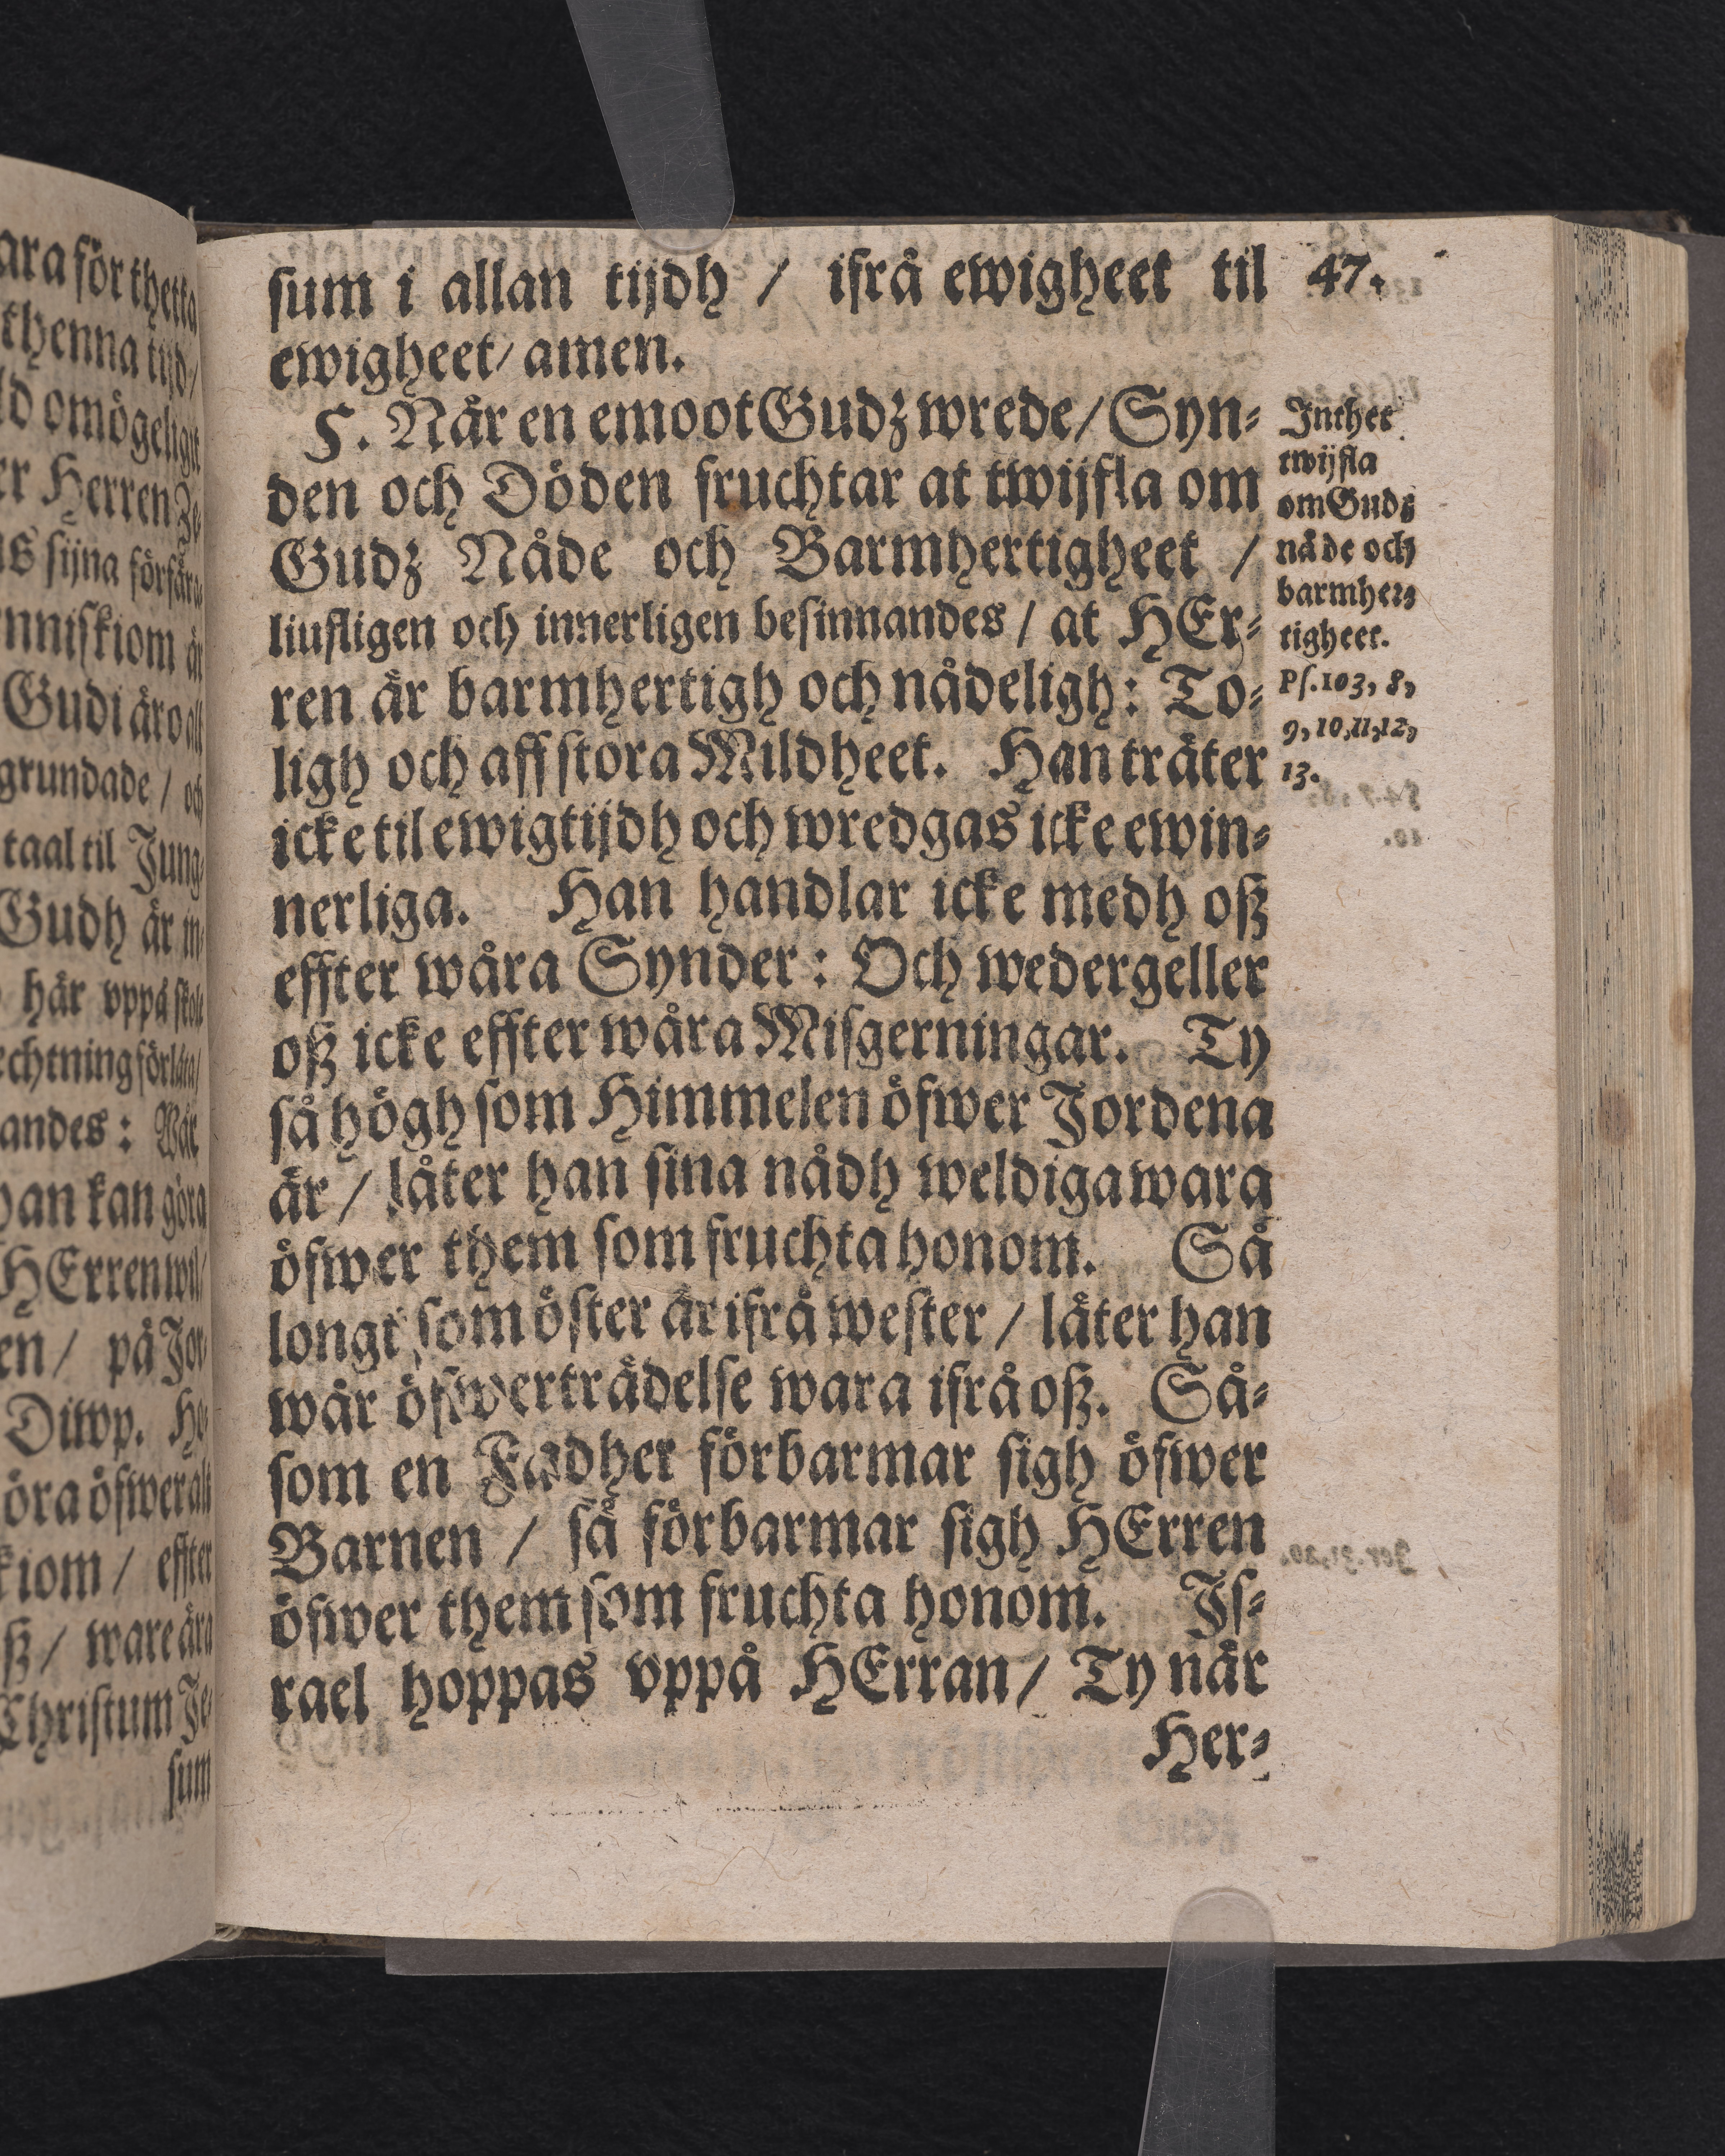 sum i allan tijdh / ifrå ewigheet til
47.
ewigheet/ amen.
5. När en emoot Gudz wrede/ Syn-
den och Döden fruchtar at twijfla om
Gudz Nåde och Barmhertigheet /
liufligen och innerligen besinnandes / at HEr-
ren är barmhertigh och nådeligh: To-
ligh och aff stora Mildheet. Han träter
icke til ewig tijdh och wredgas icke ewin-
nerliga. Han handlar icke medh oß
effter wåra Synder: Och wedergeller
oß icke effter wåra Misgerningar. Ty
så högh som Himmelen öfwer Jordena
är / låter han sina nådh weldiga wara
öfwer them som fruchta honom. Så
longt som öster är ifrå wester / låter han
wår öfwerträdelse wara ifrå oß. Så-
som en Fadher förbarmar sigh öfwer
Barnen / så förbarmar sigh HErren
öfwer them som fruchta honom. Js-
rael hoppas vppå HErran / Ty när
Her-
Inthet
twijfla
om Guds
nåde och
barmher-
tigheet.
Ps. 103, 8,
9, 10, 11, 12,
13.
ara för thetta
thenna tijd/
ld omögeligit
er Herren Je-
nniskiom är
Gudi äro alt
grundade / och
taal til Jung-
Gudh är in-
här vppå skole
andes: Wår
han kan göra
HErren wil/
en / på Jor-
Diwp. He-
öra öfwer alt
kiom / effter
ß / ware ära
Christum Je-
sum